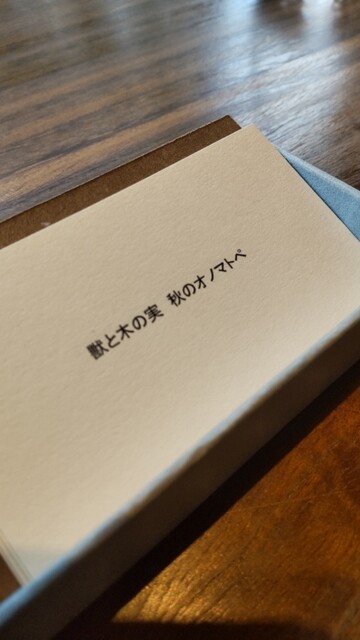 獣と木の実 秋のオノマトペ